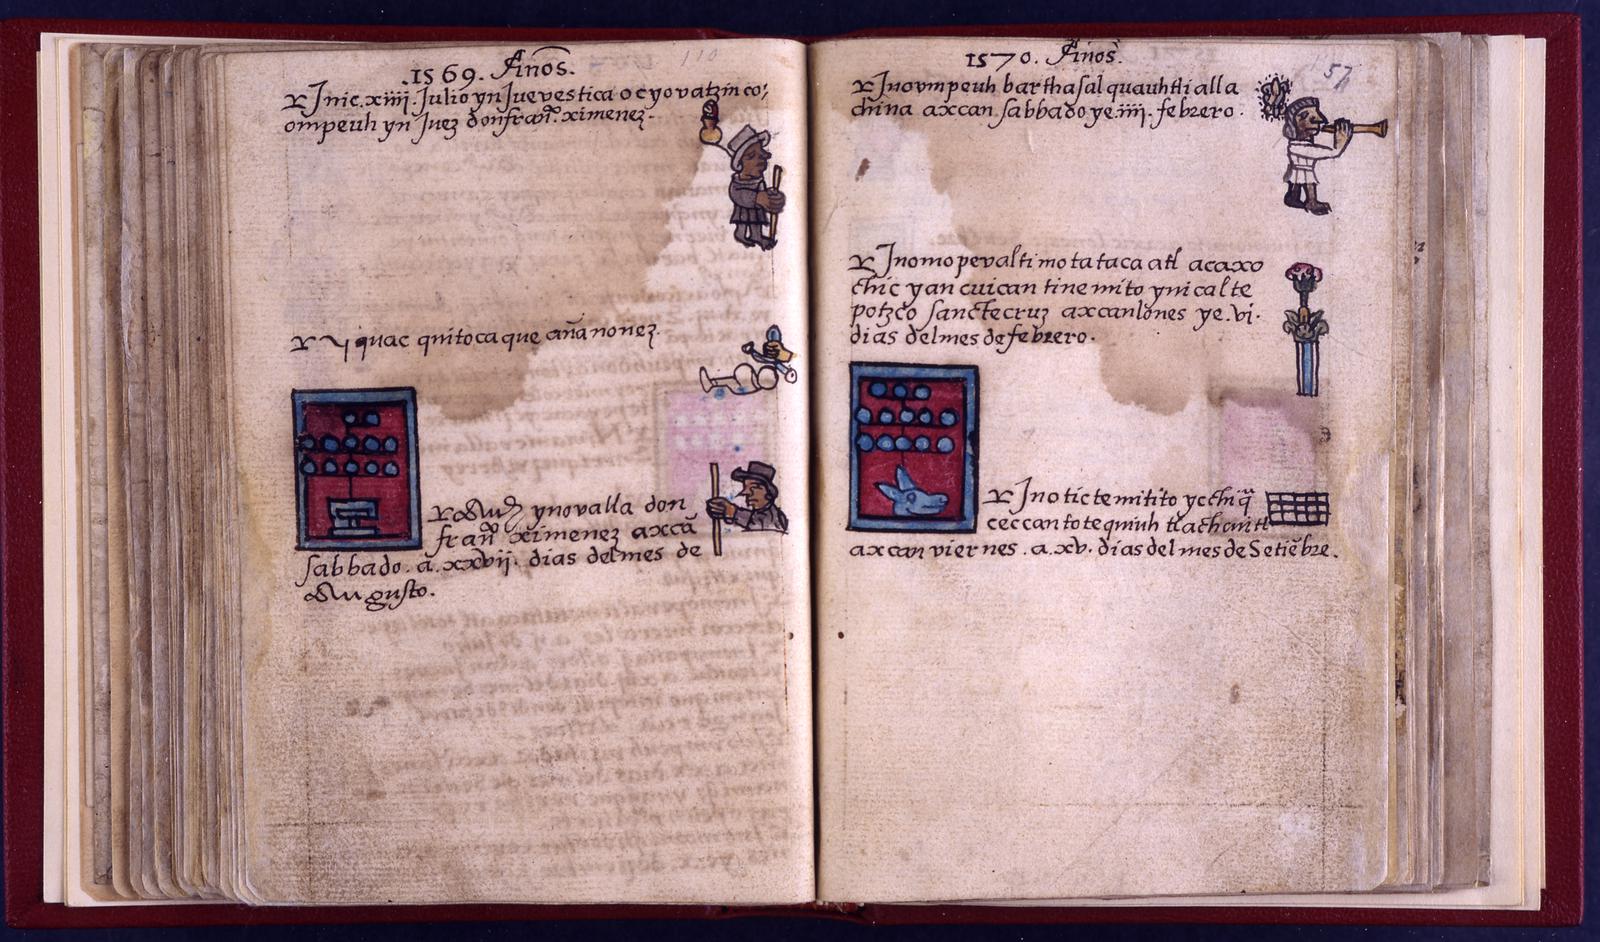 .1569. Años.
Jnic. xiiii. Julio yn Juevestica oc yovatzinco,
ompeuh yn Juez donfranᵒ. ximenez.
yquac quitocaque añanonez.
ynovalla don
franᵒ ximenez axcā
sabbado. a. xxvij. dias delmes de
Augusto.
1570. Años.
57
Jnoumpeuh barthasal quauhtli alla
china axcan sabbado ye.iiij. febrero.
Jnomopevalti motataca atl acaxo
chic yan cuican tinemito ynicalte
potzco sanctecruz axcanlōnes ye.vi.
dias delmes defebrero.
Jnotictemitito ycchiq̄
ceccan totequiuh tlachautl
axcan viernes. a. xv. dias del mes de Setiēbre.